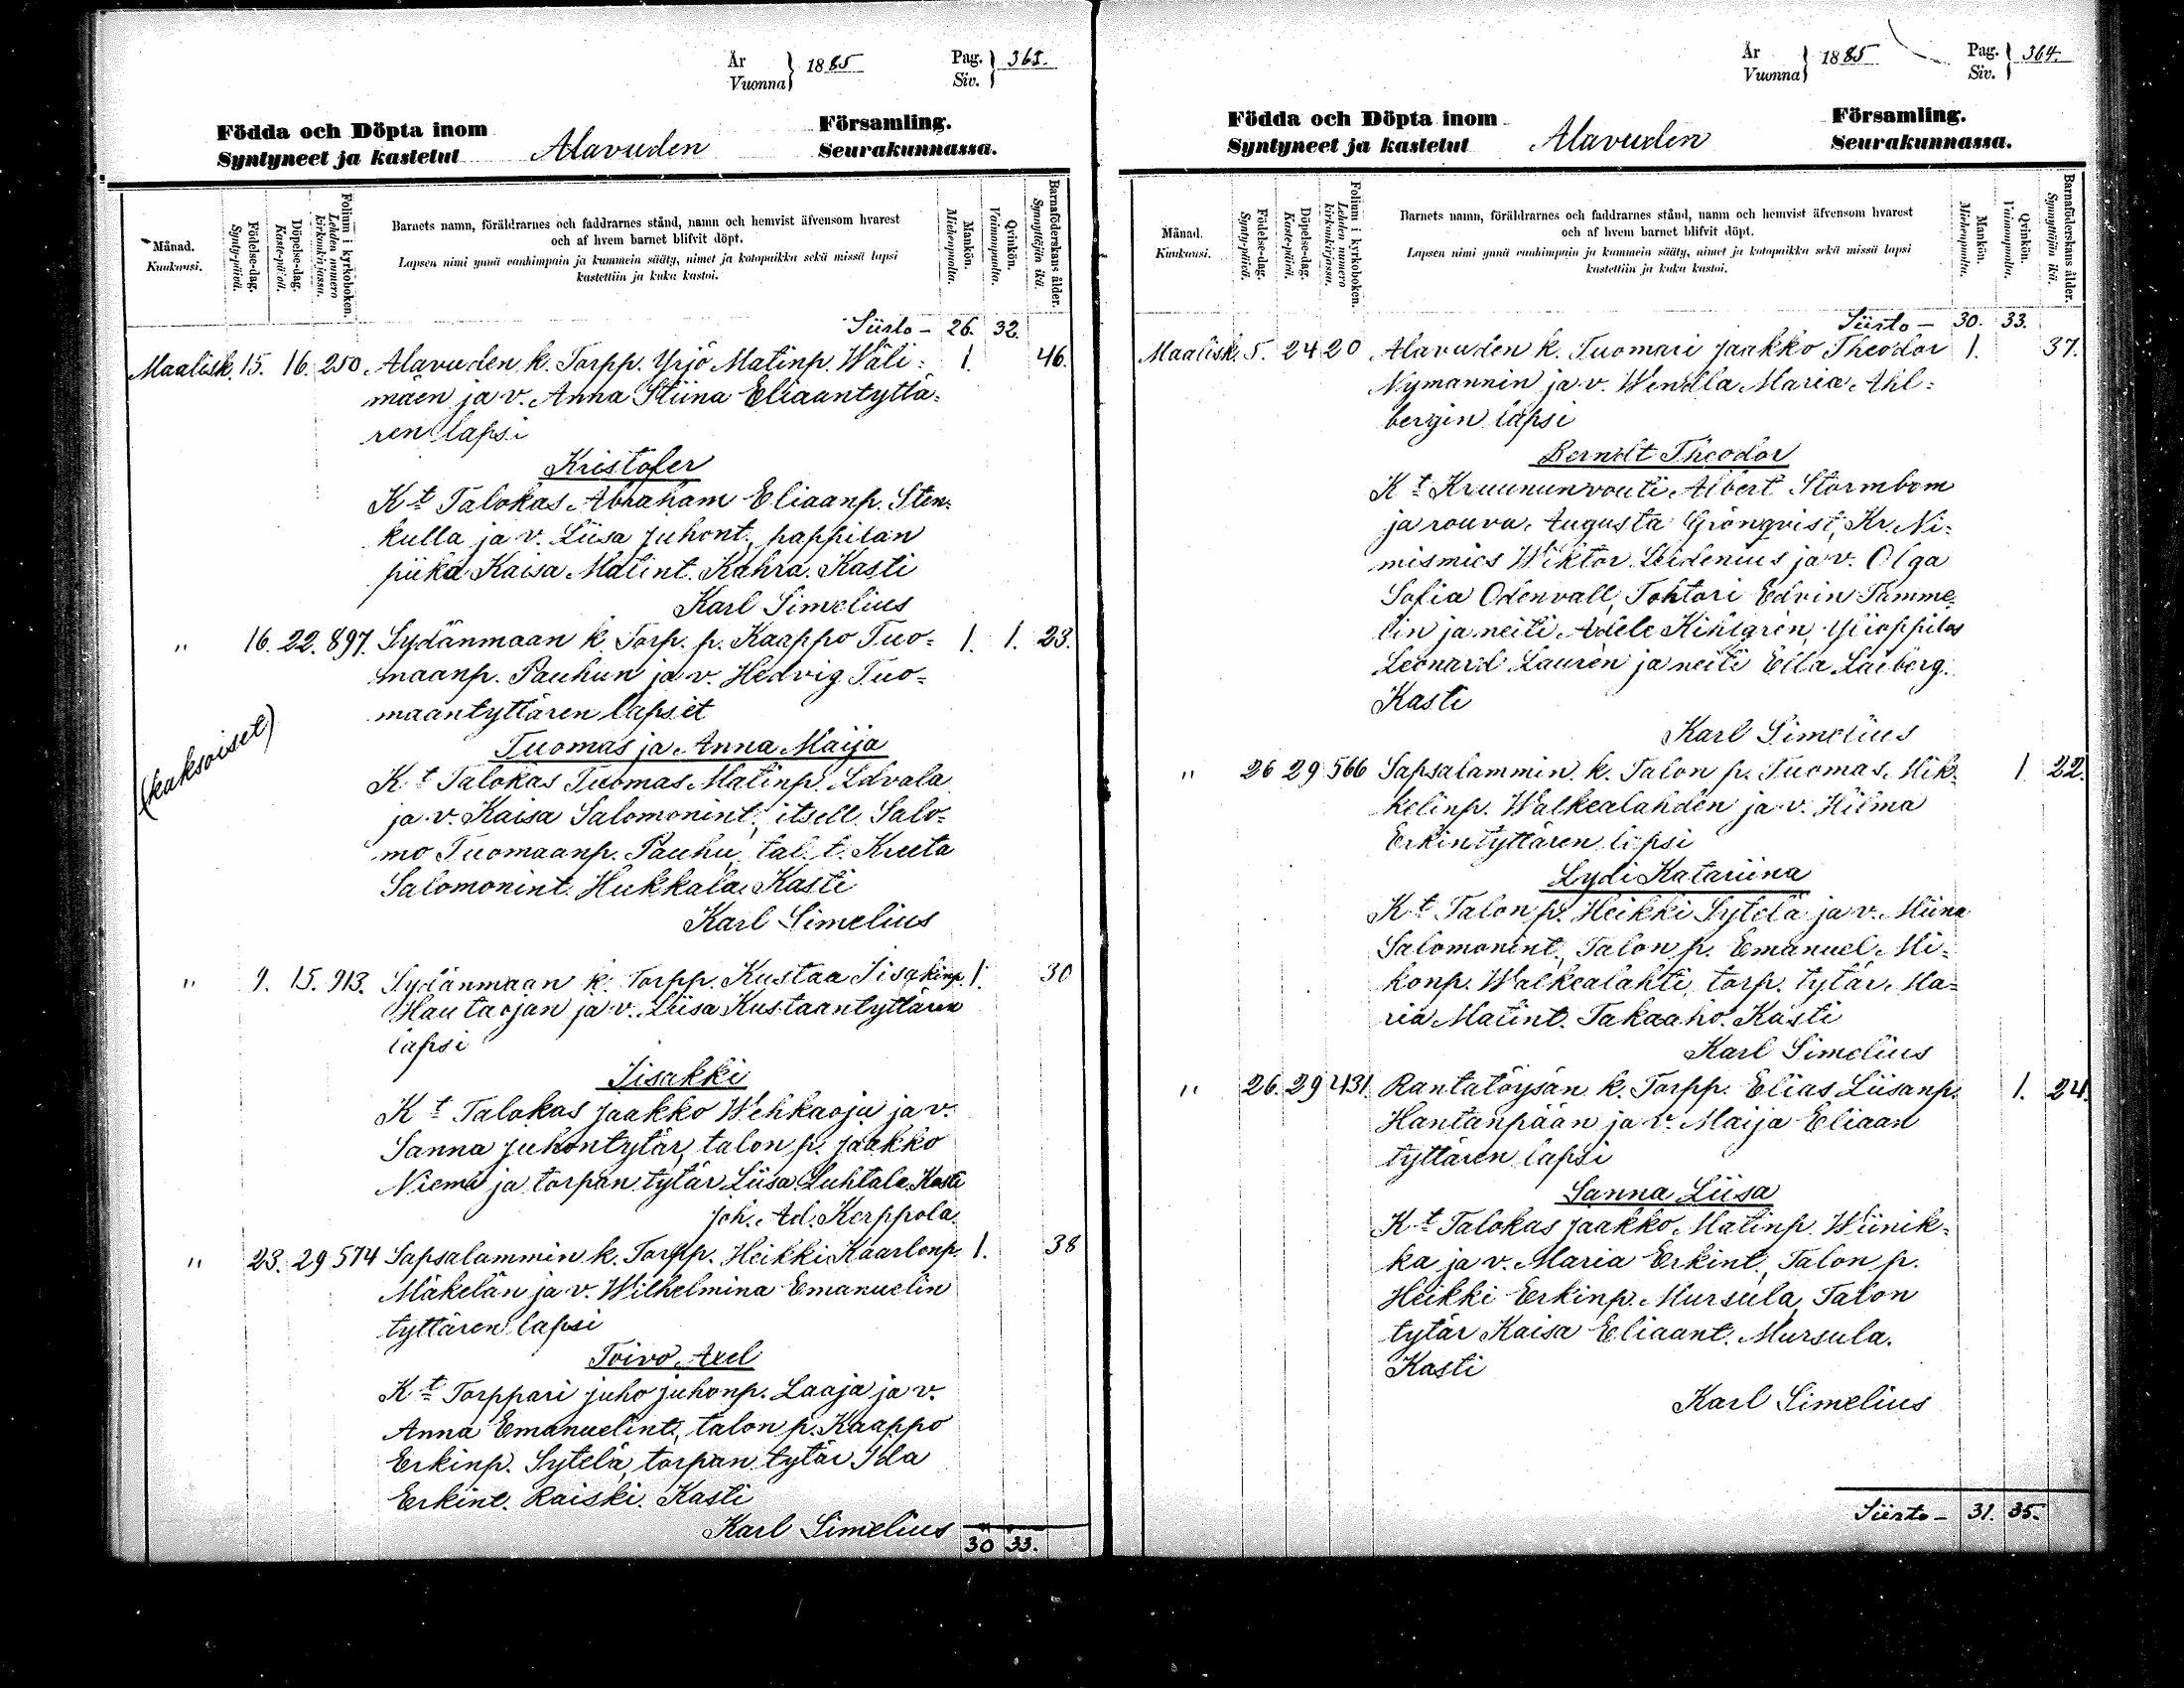 År
Vuonna } 1885 Pag.
Siv. } 363.
Födda och Döpta inom Församling.
Syntyneet ja kastetut Alavuden Seurakunnassa.
Månad.
Kuukausi.
Födelse-dag.
Synty-päivä.
Döpelse-dag.
Kaste-päivä.
Folium i kyrkoboken.
Lehden numero
kirkonkirjassa.
Barnets namn, föräldrarnes och faddrarnes stånd, namn och hemvist äfvensom hvarest
och af hvem barnet blifvit döpt.
Lapsen nimi ynnä vanhimpain ja kummein sääty, nimet ja kotopaikka sekä missä lapsi
kastettiin ja kuka kastoi.
Mankön.
Miehenpuolta.
Qvinkön.
Vaimonpuolta.
Barnaföderskans ålder.
Synnyttäjän ikä.
Siirto – 26. 32.
Maalisk. 15. 16. 250 Alavuden k. Torpp. Yrjö Matinp. Wäli= 1. 46.
mäen ja v. Anna Stiina Eliaantyttä=
ren lapsi
Kristofer
Kt Talokas Abraham Eliaanp. Sten=
kulla ja v. Liisa Juhont., pappilan
piika Kaisa Matint. Kahra. Kasti
Karl Simelius
" 16. 22. 897. Sydänmaan k. Torp. p. Kaappo Tuo= 1. 1. 23.
maanp. Pauhun ja v. Hedvig Tuo=
maantyttären lapset
(kaksoiset)
Tuomas ja Anna Maija
Kt Talokas Tuomas Matinp. Latvala
ja v. Kaisa Salomonint., itsell. Salo=
mo Tuomaanp. Pauhu, tal. t. Kreeta
Salomonint. Hukkala. Kasti
Karl Simelius
" 9. 15. 913. Sydänmaan k. Torpp. Kustaa Iisakinp. 1. 30
Hautaojan ja v. Liisa Kustaantyttären
lapsi
Iisakki
Kt Talokas Jaakko Wehkaoja ja v.
Sanna Juhontytär, talon p. Jaakko
Niemi ja torpan tytär Liisa Luhtala. Kasti
Joh. Ad. Kerppola.
" 23. 29 574 Sapsalammin k. Torpp. Heikki Kaarlonp. 1. 38
Mäkelän ja v. Wilhelmina Emanuelin
tyttären lapsi
Toivo Axel
Kt Torppari Juho Juhonp. Laaja ja v.
Anna Emanuelint., talon p. Kaappo
Erkinp. Sytelä, torpan tytär Ida
Erkint. Raiski. Kasti
Karl Simelius
30 33.
År
Vuonna } 1885 Pag.
Siv. } 364.
Födda och Döpta inom Församling.
Syntyneet ja kastetut Alavuden Seurakunnassa.
Månad.
Kuukausi.
Födelse-dag.
Synty-päivä.
Döpelse-dag.
Kaste-päivä.
Folium i kyrkoboken.
Lehden numero
kirkonkirjassa.
Barnets namn, föräldrarnes och faddrarnes stånd, namn och hemvist äfvensom hvarest
och af hvem barnet blifvit döpt.
Lapsen nimi ynnä vanhimpain ja kummein sääty, nimet ja kotopaikka sekä missä lapsi
kastettiin ja kuka kastoi.
Mankön.
Miehenpuolta.
Qvinkön.
Vaimonpuolta.
Barnaföderskans ålder.
Synnyttäjän ikä.
Siirto – 30. 33.
Maalisk. 5. 24 20 Alavuden k. Tuomari Jaakko Theodor 1. 37.
Nymannin ja v. Wendla Maria Ahl=
bergin lapsi
Berndt Theodor
Kt Kruununvouti Albert Stormbom
ja rouva Augusta Grönqvist, Kr. Ni=
mismies Wiktor Lidenius ja v. Olga
Sofia Odenvall, Tohtori Edvin Tamme=
lin ja neiti Adele Kihlgrén, Ylioppilas
Leonard Laurén ja neiti Ella Laiberg.
Kasti
Karl Simelius
" 26 29 566 Sapsalammin k. Talon p. Tuomas Mik= 1 22.
kelinp. Walkealahden ja v. Hilma
Erkintyttären lapsi
Lydi Katariina
Kt Talon p. Heikki Sytelä ja v. Miina
Salomonint., Talon p. Emanuel Mi=
konp. Walkealahti, torp. tytär Ma=
ria Matint. Takaaho. Kasti
Karl Simelius
" 26. 29 431. Rantatöysän k. Torpp. Elias Liisanp. 1. 24.
Hantanpään ja v. Maija Eliaan
tyttären lapsi
Sanna Liisa
Kt Talokas Jaakko Matinp. Wiinik=
ka ja v. Maria Erkint., Talon p.
Heikki Erkinp. Mursula, Talon
tytär Kaisa Eliaant. Mursula.
Kasti
Karl Simelius
Siirto – 31. 35.